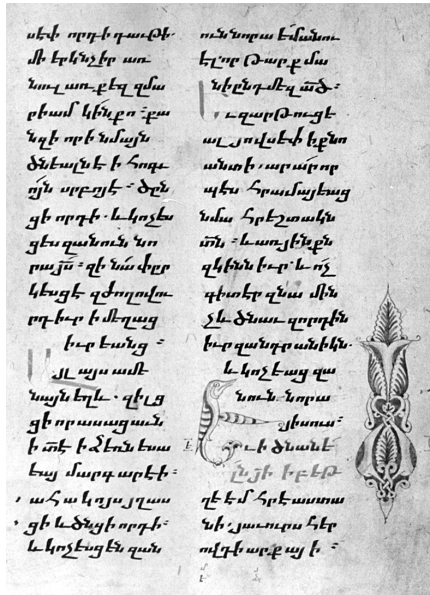 սէփ որդի դաւթի·
մի երկնչիր առ
նուլ առ քեզ զմա
րիամ կին քո· քա
նզի որ ի նմայն
ծնեալն է ի հոգւ
ոյն սրբոյ է։ ծըն
ցի որդի· և կոչես
ցես զանուն նո
րա յս̅։ զի նա փըր
կեսցէ զժողովու
րդ իւր ի մեղաց
իւրեանց։
Այլ այս ամե
նայն եղև· զի լցց
ցի որ ասացաւն
ի տէ̅ ի ձեռն եսա
եայ մարգարէի։
ահա կոյս յղաս
ցի և ծնցի որդի։
և կոչեսցեն զան
ուն նորա էմանու
էլ՝ որ թարքմա
նի ընդ մեզ ա̅ծ։
Եւ զարթուցե
ալ յովսէփ ի քնո
անտի· արար որ
պէս հրամայեաց
նմա հրեշտակն
տ̅ն։ և առ յինքն
զկինն իւր· և ոչ
գիտէր զնա մին
չև ծնաւ զորդին
իւր զանդրանիկն·
և կոչեաց զա
նուն նորա
յիսուս։
Եւ ի ծնանել
ըն յի̅ ի բեթ
ղեէմ հրէաստա
նի· յաւուրս հեր
ովդի արքայի։